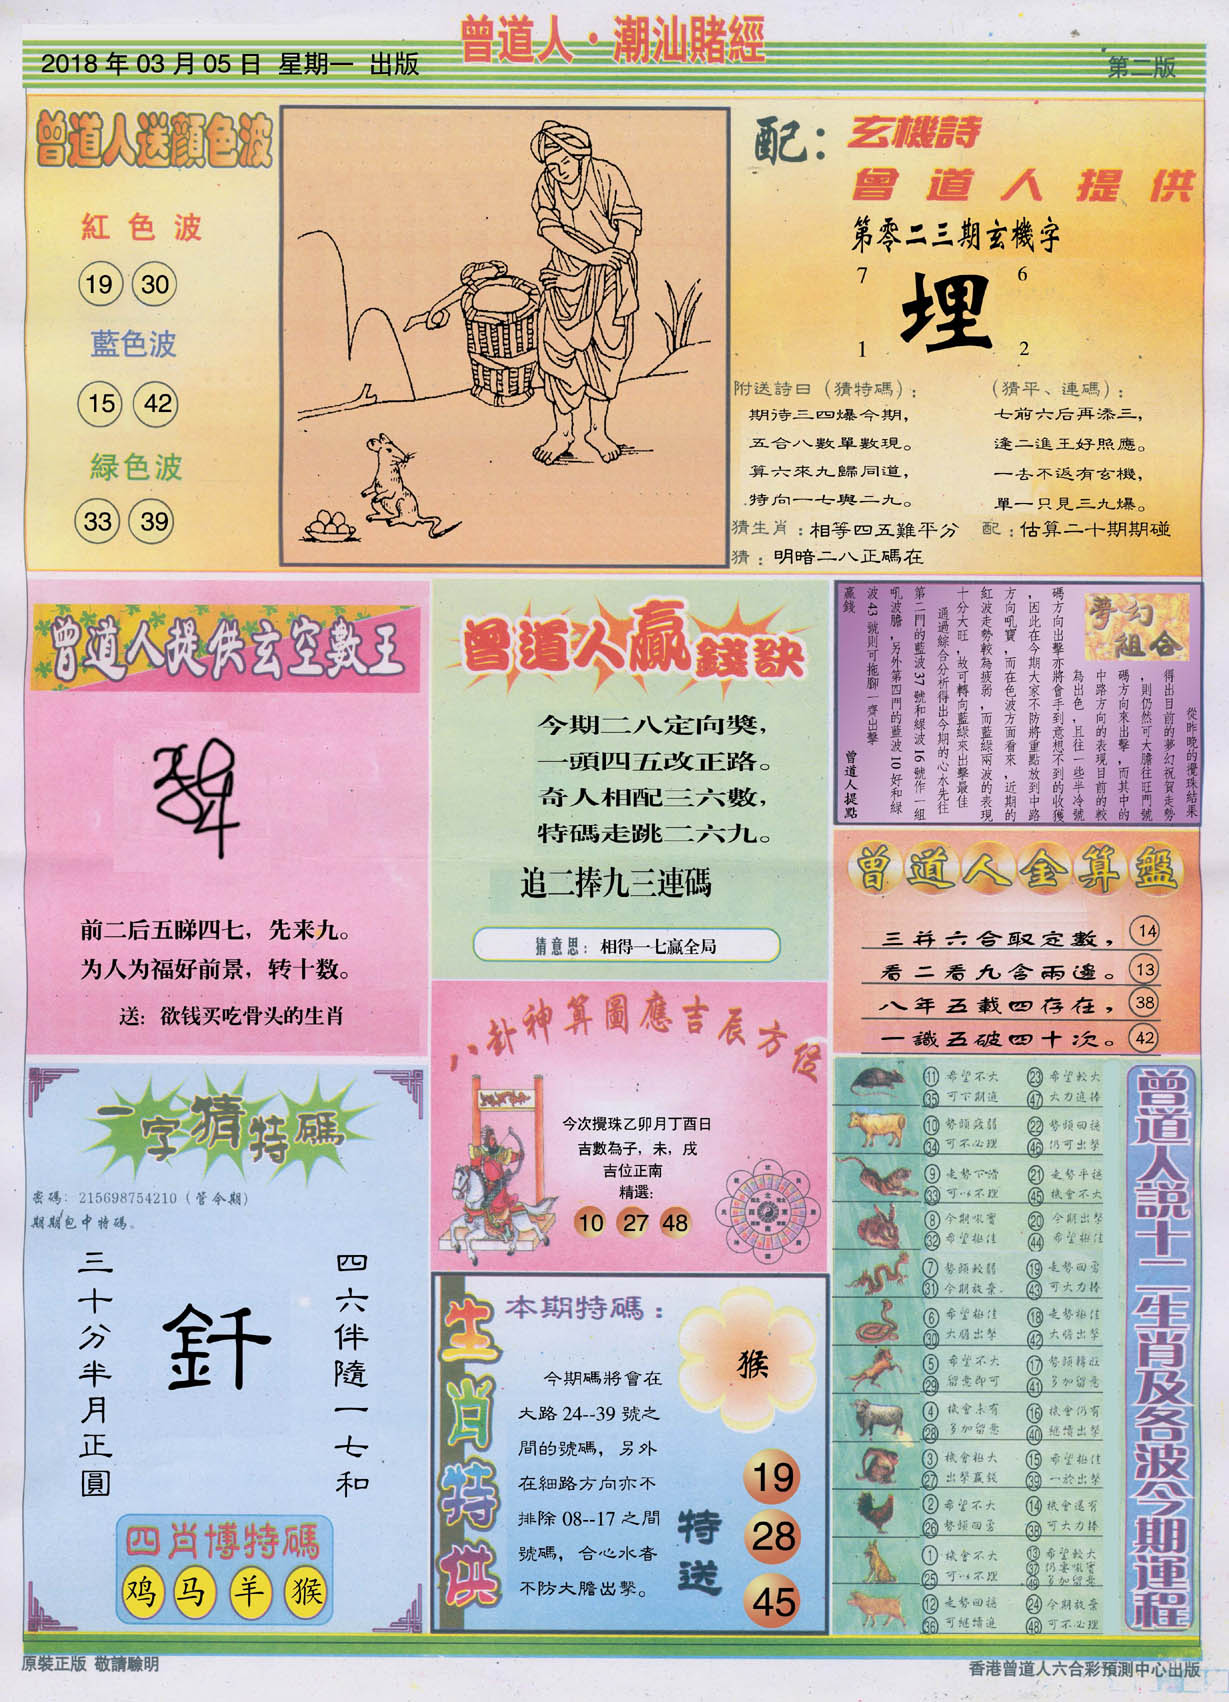 曾道人·潮汕賭經
2018 年 03 月 05 日 星期一 出版
第二版
曾道人送顏色波
紅色波
19 30
藍色波
15 42
緑色波
33 39
配：玄機詩
曾道人提供
第零二三期玄機字
7 6
埋
1 2
附送詩曰（猜特碼）：
期待三四爆今期，
五合八數單數現。
算六來九歸同道，
特向一七與二九。
（猜平、連碼）：
七前六后再添三，
逢二進王好照應。
一去不返有玄機，
單一只見三九爆。
猜生肖：相等四五難平分
配：估算二十期期碰
猜：明暗二八正碼在
曾道人提供玄空數王
前二后五睇四七，先来九。
为人为福好前景，转十数。
送：欲钱买吃骨头的生肖
曾道人贏錢訣
今期二八定向獎，
一頭四五改正路。
奇人相配三六數，
特碼走跳二六九。
追二捧九三連碼
猜意思：相得一七贏全局
夢幻組合
從昨晚的攪珠結果
得出目前的夢幻祝賀走勢
，則仍然可大膽往旺門號
碼方向來出擊，而其中的
中路方向的表現目前的較
為出色，且往一些半冷號
碼方向出擊亦將會手到意想不到的收獲
，因此在今期大家不防將重點放到中路
方向吼寶，而在色波方面看來，近期的
紅波走勢較為疲弱，而藍綠兩波的表現
十分大旺，故可轉向藍綠來出擊最佳
通過綜合分析得出今期的心水先往
第二門的藍波 37 號和緑波 16 號作一組
吼波膽，另外第四門的藍波 10 好和緑
波 43 號則可拖腳一齊出擊
贏錢
曾道人提點
曾道人金算盤
三并六合取定數， 14
看二看九含兩邊。 13
八年五載四存在， 38
一識五破四十次。 42
八卦神算圖應吉辰方位
今次攪珠乙卯月丁酉日
吉數為子，未，戌
吉位正南
精選：
10 27 48
一字猜特碼
密碼：215698754210（管令期）
期期包中特碼。
四六伴隨一七和
釺
三十分半月正圓
四肖博特碼
鸡 马 羊 猴
生肖特供
本期特碼：
猴
今期碼將會在
大路 24--39 號之
間的號碼，另外
在細路方向亦不
排除 08--17 之間
號碼，合心水者
不防大膽出擊。
特送
19
28
45
曾道人説十二生肖及各波今期運程
11 希望不大 23 希望較大
35 可下期追 47 大力追捧
10 勢頭疲弱 22 勢頭回穩
34 可不必理 46 仍可出擊
9 走勢下滑 21 走勢平穩
33 可以不理 45 機會不大
8 今期吼寶 20 今期出擊
32 希望極佳 44 希望極佳
7 勢頭較弱 19 走勢回勇
31 今期放棄 43 可大力捧
6 希望極佳 18 走勢極佳
30 大膽出擊 42 大膽出擊
5 希望不大 17 勢頭轉旺
29 留意即可 41 多加留意
4 機會未有 16 機會仍有
28 多加留意 40 繼續出擊
3 機會極大 15 希望極佳
27 出擊贏錢 39 一於出擊
2 希望不大 14 機會還有
26 勢頭回勇 38 可大力捧
1 機會不大 13 希望較大
25 可以不理 37 仍要吼寶
49 多加留意
12 走勢回穩 24 今期放棄
36 可繼續追 48 可不必理
原裝正版 敬請驗明
香港曾道人六合彩預測中心出版